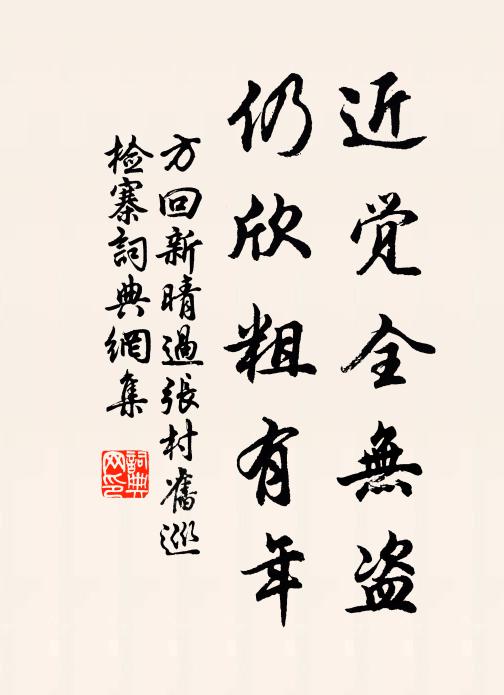 近觉全無盗
仍欣粗有年
方回新晴過張村舊巡
检寨詞典網集
詞典
网印